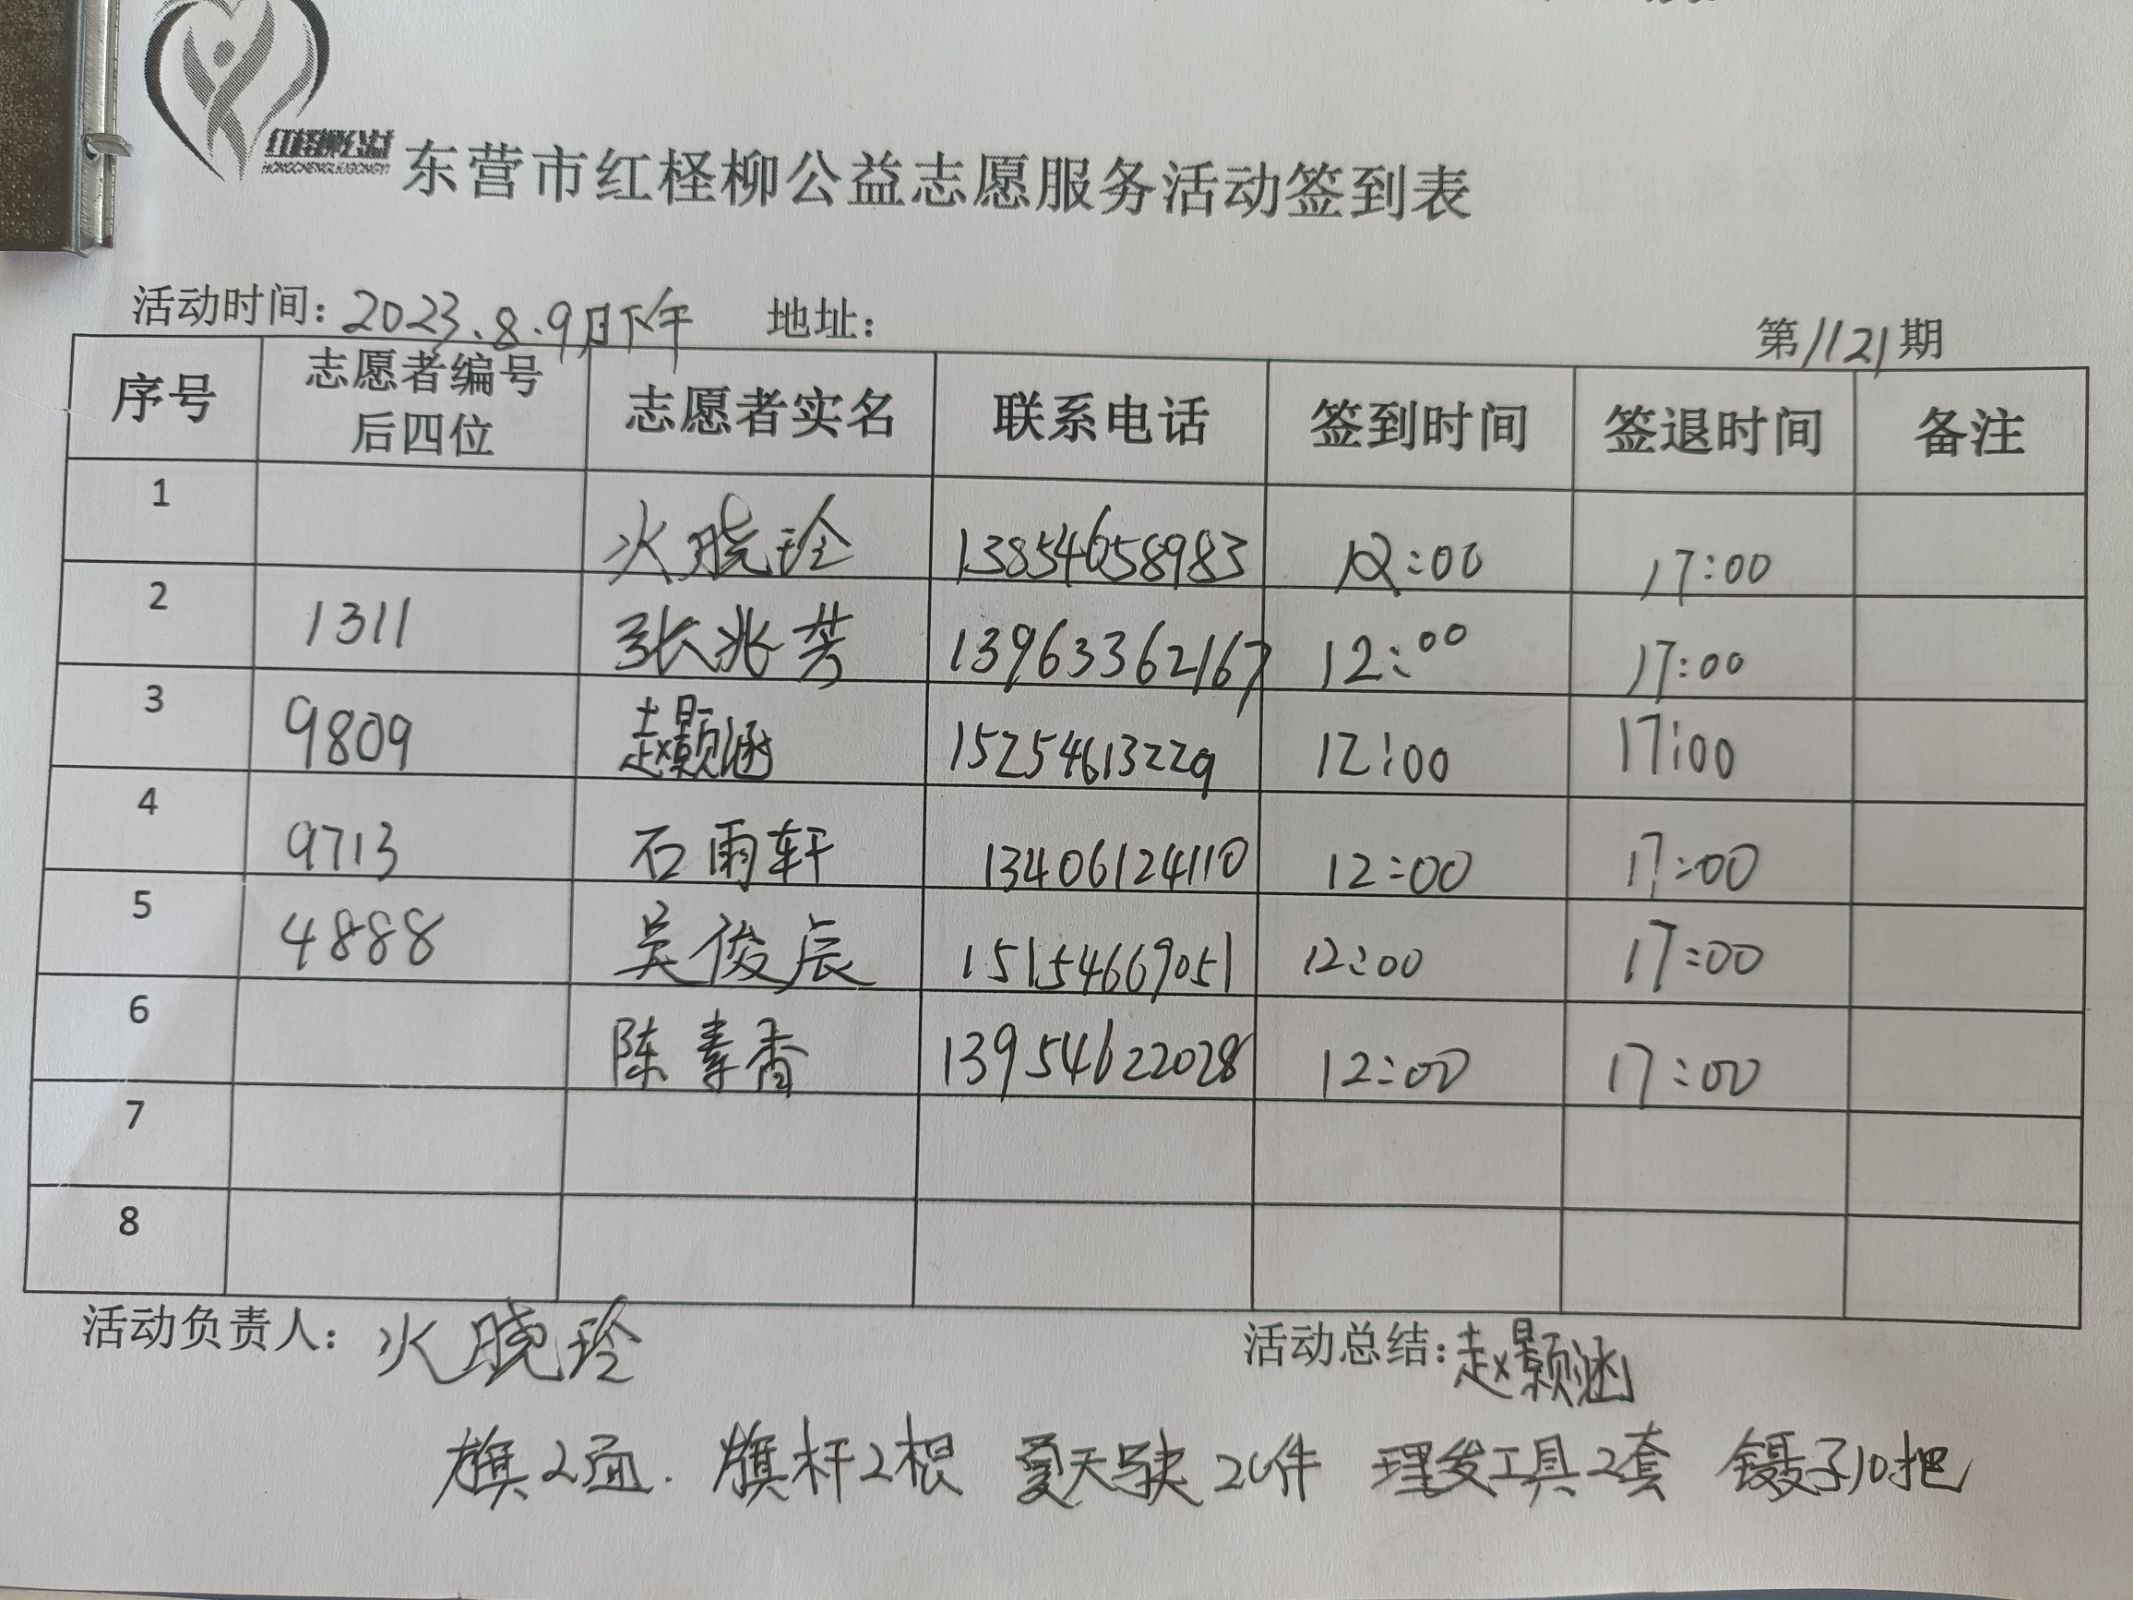 红柽柳公益
HONGCHENGLIUGONGYI
东营市红柽柳公益志愿服务活动签到表
活动时间：2023.8.9日下午 地址： 第1121期
序号 志愿者编号后四位 志愿者实名 联系电话 签到时间 签退时间 备注
1 火晓玲 13854658983 12:00 17:00
2 1311 张兆芳 13963362167 12:00 17:00
3 9809 赵颢涵 15254613229 12:00 17:00
4 9713 石雨轩 13406124110 12:00 17:00
5 4888 吴俊辰 15154669051 12:00 17:00
6 陈素香 13954622028 12:00 17:00
7
8
活动负责人：火晓玲 活动总结：赵颢涵
旗2面. 旗杆2根 夏天 20件 理发工具2套 镊子10把